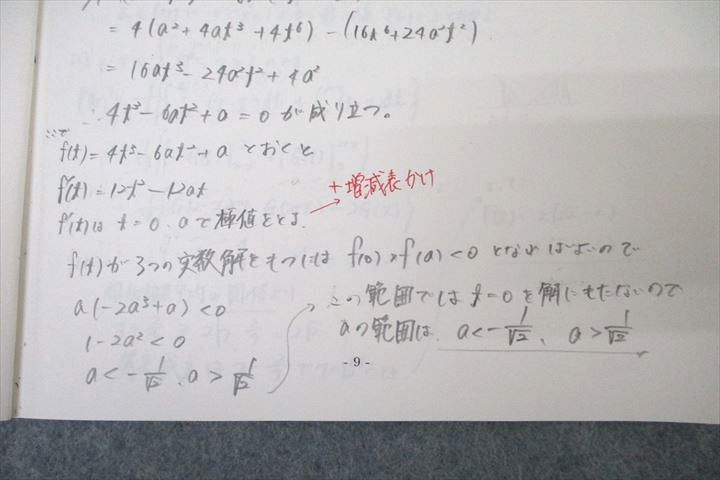 = 4(a² + 4at³ + 4t⁶) - (16t⁶ + 24a²t²)
= 16at³ - 24a²t² + 4a²
∴ 4t³ - 6at² + a = 0 が成り立つ。
ここで
f(t) = 4t³ - 6at² + a とおくと
f'(t) = 12t² - 12at
+増減表かけ
f(t)は t = 0、aで極値をとる.
f(t)が3つの実数解をもつには f(0)×f(a) < 0 となればよいので
a(-2a³ + a) < 0
1 - 2a² < 0
a < -1/√2 、a > 1/√2
この範囲では t = 0 を解にもたないので
aの範囲は、a < -1/√2 、 a > 1/√2
- 9 -